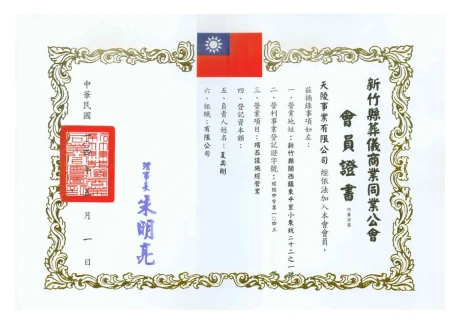 新竹縣葬儀商業同業公會
會員證書
天陵事業有限公司 經依法加入本會會員,
茲摘錄事項如左:
一、營業地址:新竹縣關西鎮東平里小東坑二十二之一
二、營利事業登記證字號:
三、營業項目:殯葬設施經營業
四、登記資本額:
五、負責人姓名:夏兵剛
六、組織:有限公司
理事長 朱明亮
中華民國
月一日